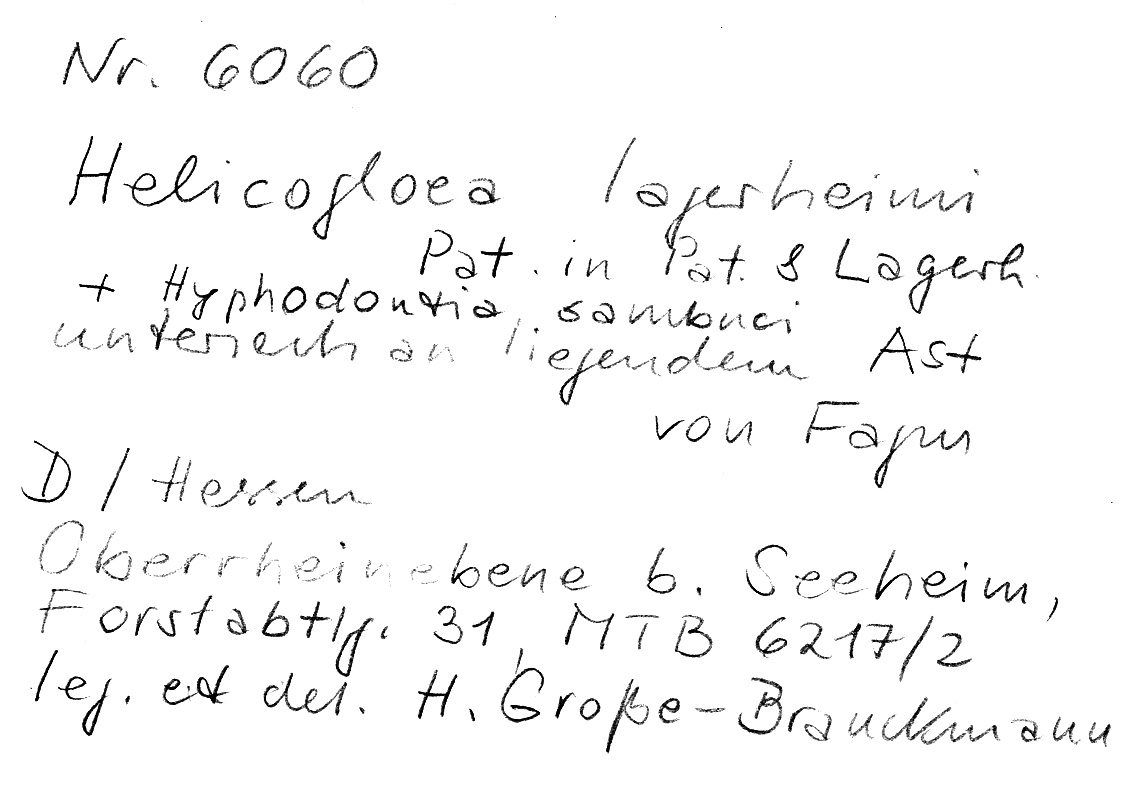 Nr. 6060
Helicogloea lagerheimi
Pat. in Pat. & Lagerh.
+ Hyphodontia sambuci
unterseits an liegendem Ast
von Fagus
D / Hessen
Oberrheinebene b. Seeheim,
Forstabtlg. 31, MTB 6217/2
leg. et det. H. Große-Brauckmann